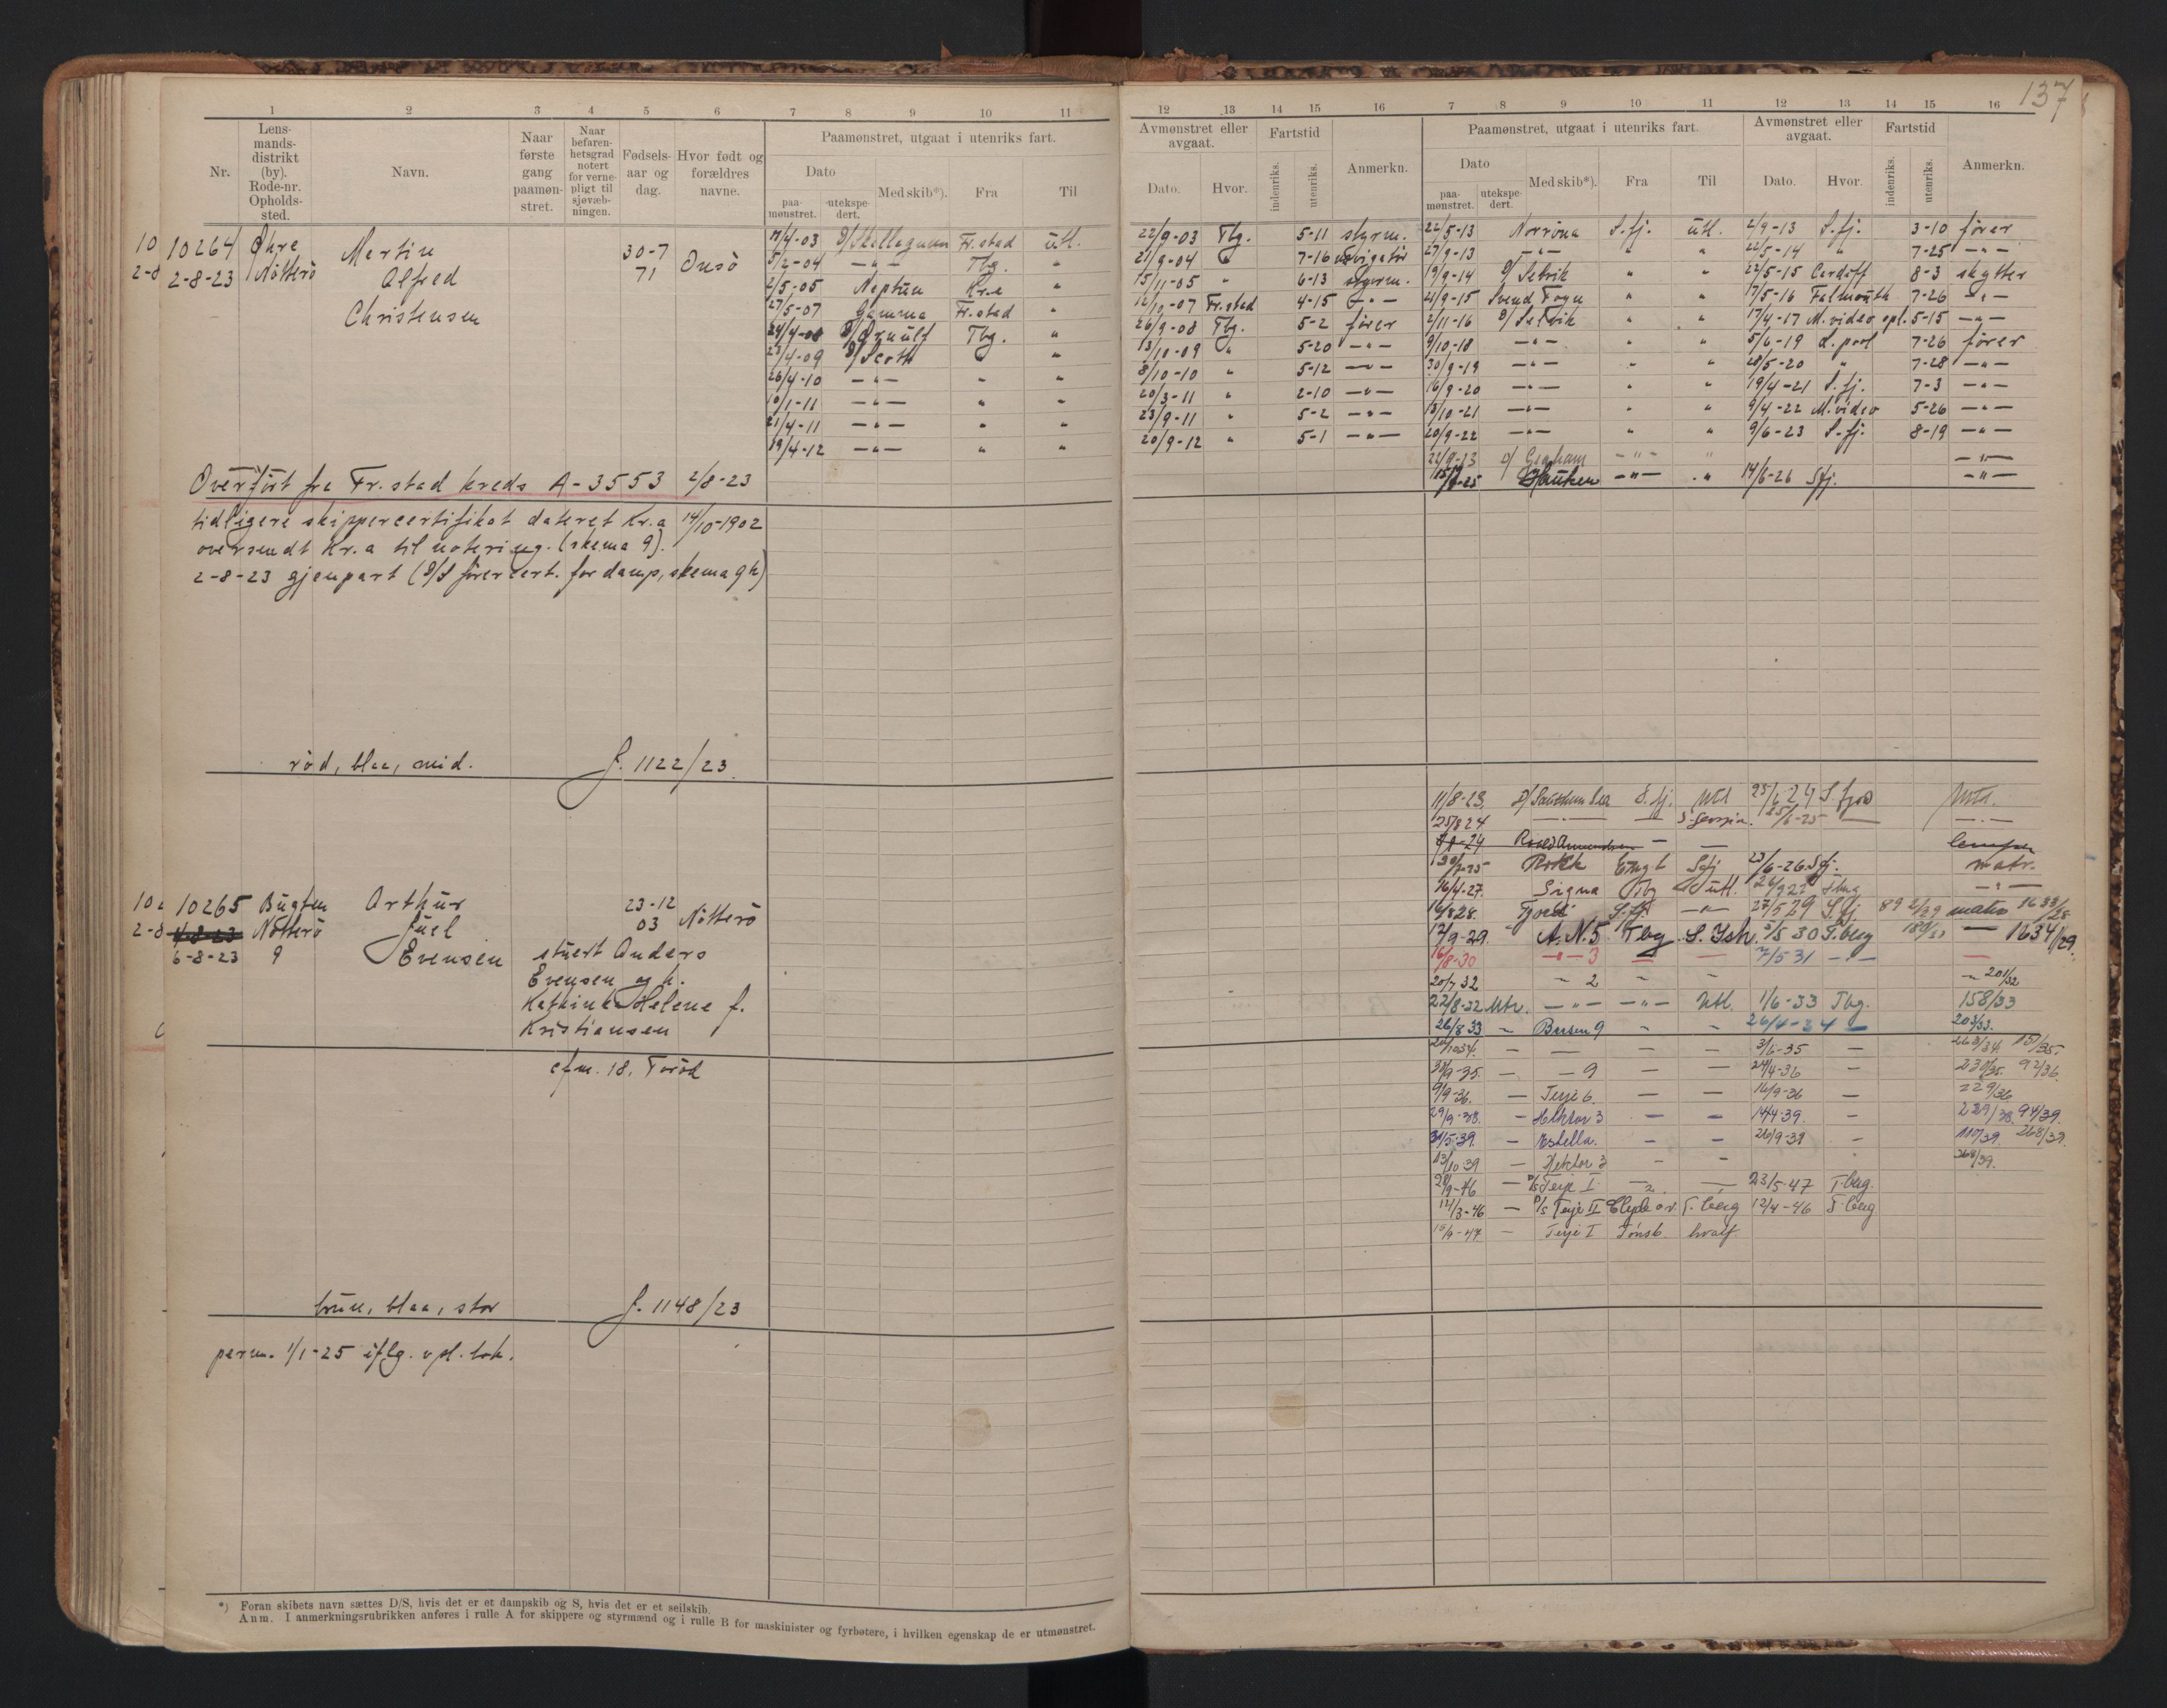 137
1 2 3 4 5 6 7 8 9 10 11
12 13 14 15 16 7 8 9 10 11 12 13 14 15 16
Nr.
Lens-
mands-
distrikt
(by).
Rode-nr.
Opholds-
sted.
Navn.
Naar
første
gang
paamøn-
stret.
Naar
befaren-
hetsgrad
notert
for verne-
pligt til
sjøvæb-
ningen.
Fødsels-
aar og
dag.
Hvor født og
forældres
navne.
Paamønstret, utgaat i utenriks fart.
Dato
paa-
mønstret.
utekspe-
dert.
Med skib*).
Fra
Til
Avmønstret eller
avgaat.
Dato.
Hvor.
Fartstid
indenriks.
utenriks.
Anmerkn.
Paamønstret, utgaat i utenriks fart.
Dato
paa-
mønstret.
utekspe-
dert.
Med skib*).
Fra
Til
Avmønstret eller
avgaat.
Dato.
Hvor.
Fartstid
indenriks.
utenriks.
Anmerkn.
10
2-8
10264
2-8-23
Nötterö
Martin
Alfred
Christensen
30-7
71
Onsö
/4-03 Fr.stad utl. 22/9-03 Tbg. 5-11 styrm.
5/2-04 -"- Tbg. " 21/9-04 " 7-16
2/5-05 Neptun Kr.a " 15/11-05 " 6-13 styrm.
27/5-07 Gamma Fr.stad " 12/10-07 Fr.stad 4-15 -"-
24/4-08 Tbg. " 26/9-08 Tbg. 5-2 fører
23/4-09 " " 13/10-09 " 5-20 -"-
26/4-10 -"- " " 8/10-10 " 5-12 -"-
10/1-11 -"- " " 20/3-11 " 2-10 -"-
21/4-11 -"- " " 23/9-11 " 5-2 -"-
19/4-12 -"- " " 20/9-12 " 5-1 -"-
22/5-13 Norröna S.fj. utl. 2/9-13 S.fj. 3-10 fører
27/9-13 -"- " " 22/5-14 " 7-25 -"-
19/9-14 D/ Selvik " " 22/5-15 Cardiff 8-3 skytter
21/9-15 Svend Foyn " " 17/5-16 Falmouth 7-26 -"-
2/11-16 D/ Selvik " " 17/4-17 M.video opl. 5-15 -"-
9/10-18 -"- " " 5/6-19 L.pool 7-26 fører
30/9-19 -"- " " 28/5-20 " 7-28 -"-
16/9-20 -"- " " 19/4-21 S.fj. 7-3 -"-
13/10-21 -"- " " 9/4-22 M.video 5-26 -"-
20/9-22 -"- " " 9/6-23 S.fj. 8-19 -"-
22/9-23 D/ Graham -"- " -"-
Hauken -"- " 14/6-26 Sfj. -"-
Overfört fra Fr.stad kreds A-3553 2/8-23
tidligere skippercertifikat dateret Kr.a 14/10-1902
oversendt Kr.a til notering. (skema 9).
2-8-23 gjenpart (D/S förercert. for damp, skema 9 h)
röd, blaa, mid. J. 1122/23
10
2-8
10265
4-8-23
6-8-23
Nötterö
9
Arthur
Juel
Evensen
23-12
03
Nötterö
stuert Anders
Evensen og h.
Kathinka Helene f.
Kristiansen
cfm. 18, Torød
11/8-23 D/ Southern Sea S.fj. Utl 25/6 24 S.fjod
25/8 24 -"- - S.Georgia. 25/6-25 - -"-
Roald Amundsen - - lemper
Rokk Engl Sfj 23/6-26 Sfj. matr.
16/4-27. Signa Tbg utl. -"-
S.fj -"- 27/5 29 S.fj matr 1633/28
12/9-29. A.N.5 Tbg S.Ish. 3/5 30 T.berg - 1634/29.
16/8-30 -"- 3 - - 7/5 31 -"- -
20/7 32 - 2 - - 201/32
22/8-32 Mtr. -"- -"- Utl. 1/6-33 Tbg. 158/33
26/8 33 - Busen 9 - - 26/4-34 - 203/33.
- - - - 3/6-35 - 263/34. 151/35.
- - 9 - - 24/4-36 - 230/35. 92/36.
9/9-36. - Terje 6. - - 16/9-36 - 229/36
29/9-38. - Hektor 3 - - 14/4-39 - 94/39.
31/5-39. - Estella. - - 20/9-39 - 117/39. 268/39.
13/10 39 - Hektor 3 - - 268/39.
28/9-46 - Terje I - - 23/5-47 T.berg.
12/3-46 - Terje II T.berg 12/4-46 T.berg
- Terje I Tønsb. hvalf.
brun, blaa, stor J. 1148/23
perm. 1/1-25 iflg. vpl. bok.
*) Foran skibets navn sættes D/S, hvis det er et dampskib og S, hvis det er et seilskib.
Anm. I anmerkningsrubrikken anføres i rulle A for skippere og styrmænd og i rulle B for maskinister og fyrbøtere, i hvilken egenskap de er utmønstret.